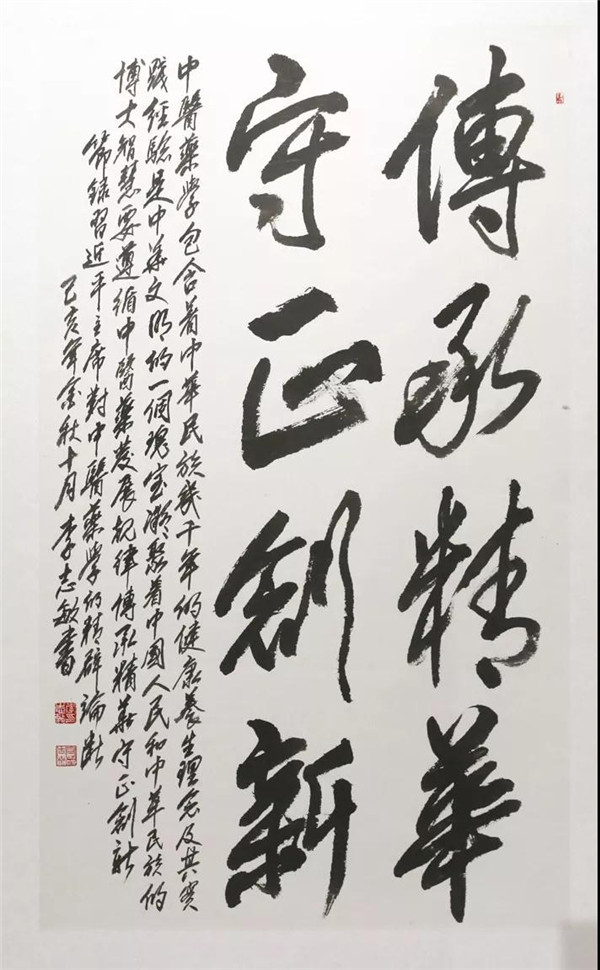 傳承精華
守正創新
中醫藥學包含着中華民族幾千年的健康養生理念及其實
踐經驗是中華文明的一個瑰宝凝聚着中國人民和中華民族的
博大智慧要遵循中醫藥發展規律傳承精華守正創新
節録習近平主席對中醫藥學的精辟論斷
己亥年金秋十月李志敏書